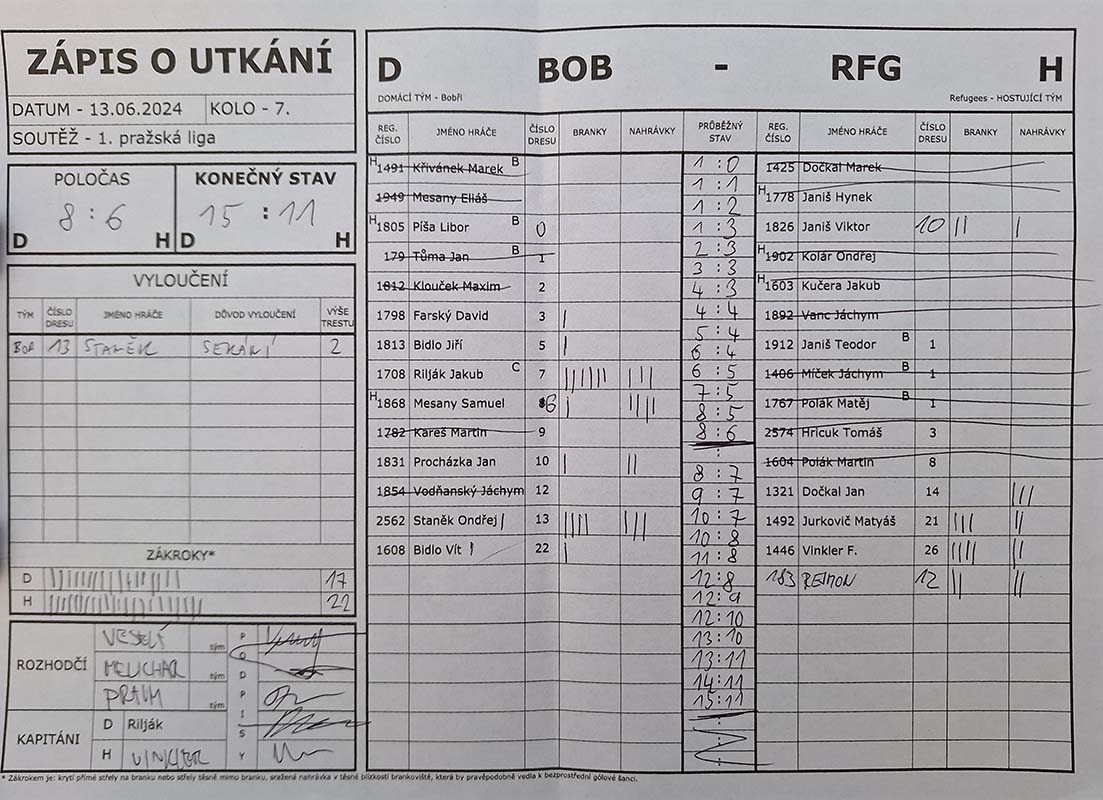 ZÁPIS O UTKÁNÍ
DATUM - 13.06.2024 KOLO - 7.
SOUTĚŽ - 1. pražská liga
POLOČAS KONEČNÝ STAV
8 : 6 15 : 11
D H D H
VYLOUČENÍ
TÝM ČÍSLO DRESU JMÉNO HRÁČE DŮVOD VYLOUČENÍ VÝŠE TRESTU
BOB 13 STANĚK SEKÁNÍ 2
ZÁKROKY*
D 17
H 22
ROZHODČÍ
VESELÝ tým
MELICHAR tým
tým
PODPISY
KAPITÁNI
D Rilják
H VINKLER
D BOB - RFG H
DOMÁCÍ TÝM - Bobři Refugees - HOSTUJÍCÍ TÝM
REG. ČÍSLO JMÉNO HRÁČE ČÍSLO DRESU BRANKY NAHRÁVKY PRŮBĚŽNÝ STAV REG. ČÍSLO JMÉNO HRÁČE ČÍSLO DRESU BRANKY NAHRÁVKY
H 1491 Křivánek Marek B
1949 Mesany Eliáš
H 1805 Píša Libor B 0
179 Tůma Jan B 1
1812 Klouček Maxim 2
1798 Farský David 3 |
1813 Bidlo Jiří 5 |
1708 Rilják Jakub C 7 |||||| |||
H 1868 Mesany Samuel 6 | ||||
1782 Kareš Martin 9
1831 Procházka Jan 10 | ||
1854 Vodňanský Jáchym 12
2562 Staněk Ondřej 13 |||| |||
1608 Bidlo Vít 22 |
1 : 0
1 : 1
1 : 2
1 : 3
2 : 3
3 : 3
4 : 3
4 : 4
5 : 4
6 : 4
6 : 5
7 : 5
8 : 5
8 : 6
8 : 7
9 : 7
10 : 7
10 : 8
11 : 8
12 : 8
12 : 9
12 : 10
13 : 10
13 : 11
14 : 11
15 : 11
1425 Dočkal Marek
H 1778 Janiš Hynek
1826 Janiš Viktor 10 || |
H 1902 Kolár Ondřej
H 1603 Kučera Jakub
1892 Vanc Jáchym
1912 Janiš Teodor B 1
1406 Míček Jáchym B 1
1767 Polák Matěj B 1
2574 Hricuk Tomáš 3
1604 Polák Martin 8
1321 Dočkal Jan 14 |||
1492 Jurkovič Matyáš 21 ||| ||
1446 Vinkler F. 26 |||| ||
183 REIMON 12 || ||
* Zákrokem je: krytí přímé střely na branku nebo střely těsně mimo branku, sražená nahrávka v těsné blízkosti brankoviště, která by pravěpodobně vedla k bezprostřední gólové šanci.